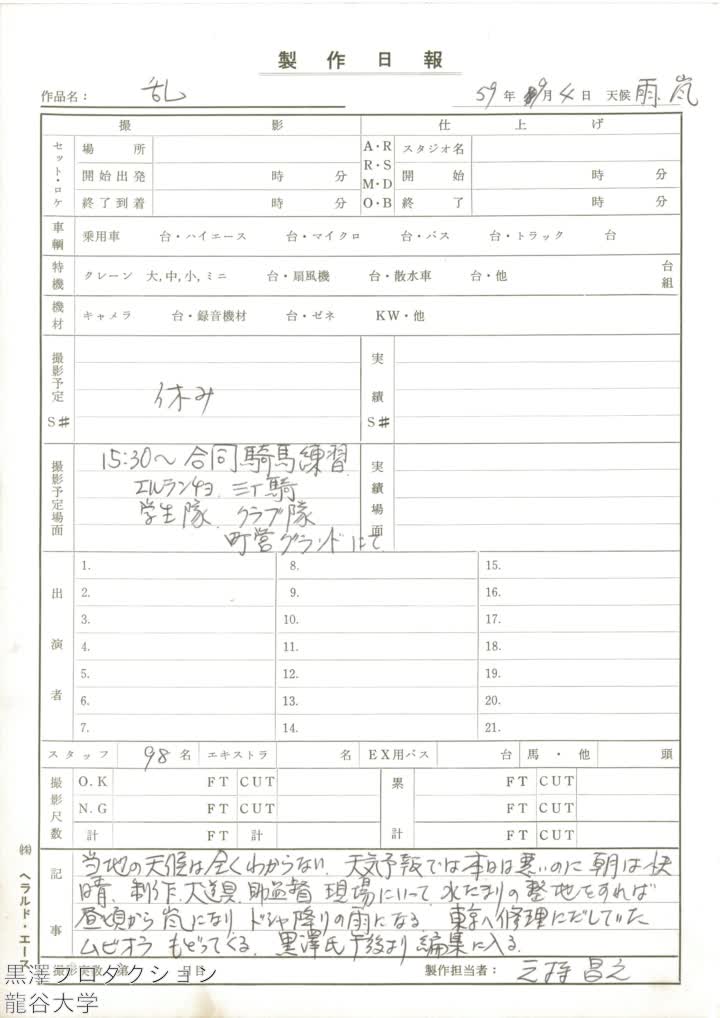 製作日報
作品名： 乱 59年 9月 4日 天候 雨、嵐
撮影 仕上げ
セット・ロケ 場所 A・R スタジオ名
開始出発 時 分 R・S 開始 時 分
終了到着 時 分 M・D O・B 終了 時 分
車輌 乗用車 台・ハイエース 台・マイクロ 台・バス 台・トラック 台
特機 クレーン 大,中,小,ミニ 台・扇風機 台・散水車 台・他 台 組
機材 キャメラ 台・録音機材 台・ゼネ KW・他
撮影予定 S# 休み 実績 S#
撮影予定場面 15:30〜合同騎馬練習 実績場面
エルランチョ、三丁騎
学生隊、クラブ隊
町営グランドにて
出演者
1. 8. 15.
2. 9. 16.
3. 10. 17.
4. 11. 18.
5. 12. 19.
6. 13. 20.
7. 14. 21.
スタッフ 98名 エキストラ 名 EX用バス 台 馬・他 頭
撮影尺数 O.K FT CUT 累計 FT CUT
N.G FT CUT FT CUT
計 FT 計 FT CUT
記事 当地の天候は全くわからない、天気予報では本日は悪いのに朝は快
晴、制作、大道具、助監督 現場にいって、水たまりの整地をすれば
昼頃から嵐になり、ドシャ降りの雨になる。東京へ修理にだしていた
ムビオラ もどってくる。黒澤氏午後より編集に入る。
㈱ヘラルド・エース
撮影実数 第 日目 製作担当者： 昌之
黒澤プロダクション
龍谷大学